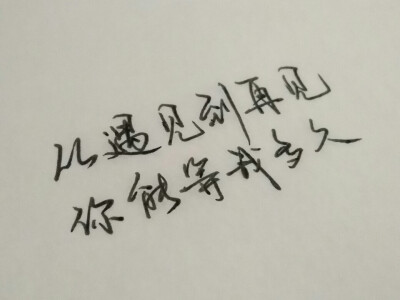 从遇见到再见
你能等我多久